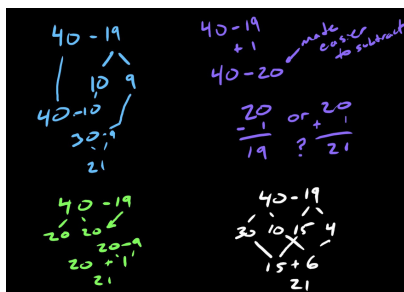 40 - 19
10 9
40 - 10
30 - 9
21
40 - 19
+ 1
40 - 20
made
easier
to subtract
20 or 20
- 1 + 1
19 ? 21
40 - 19
20 20
20 - 9
20 + 1
21
40 - 19
30 10 15 4
15 + 6
21